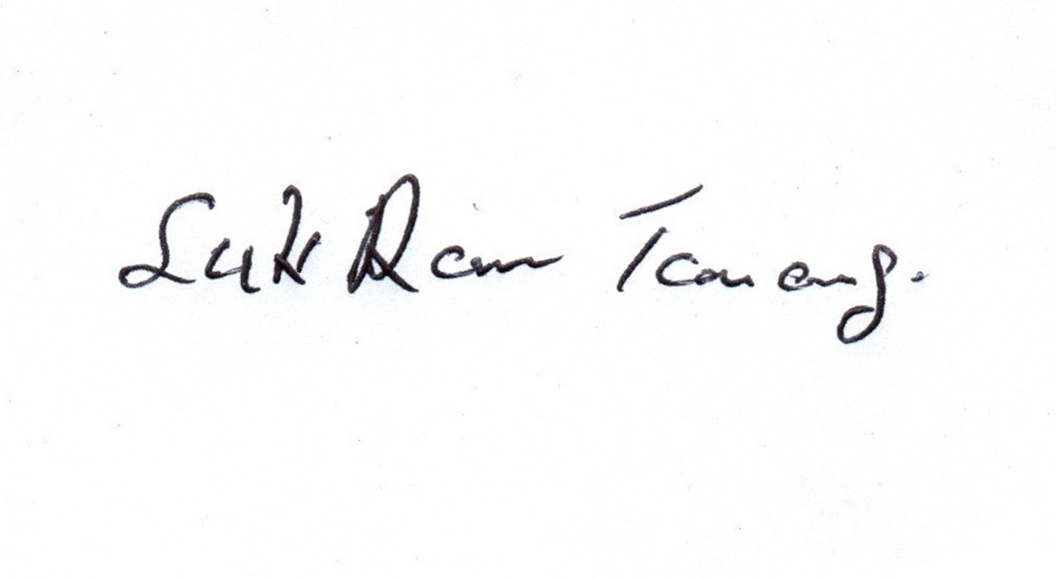 Suk Ram Tamang.